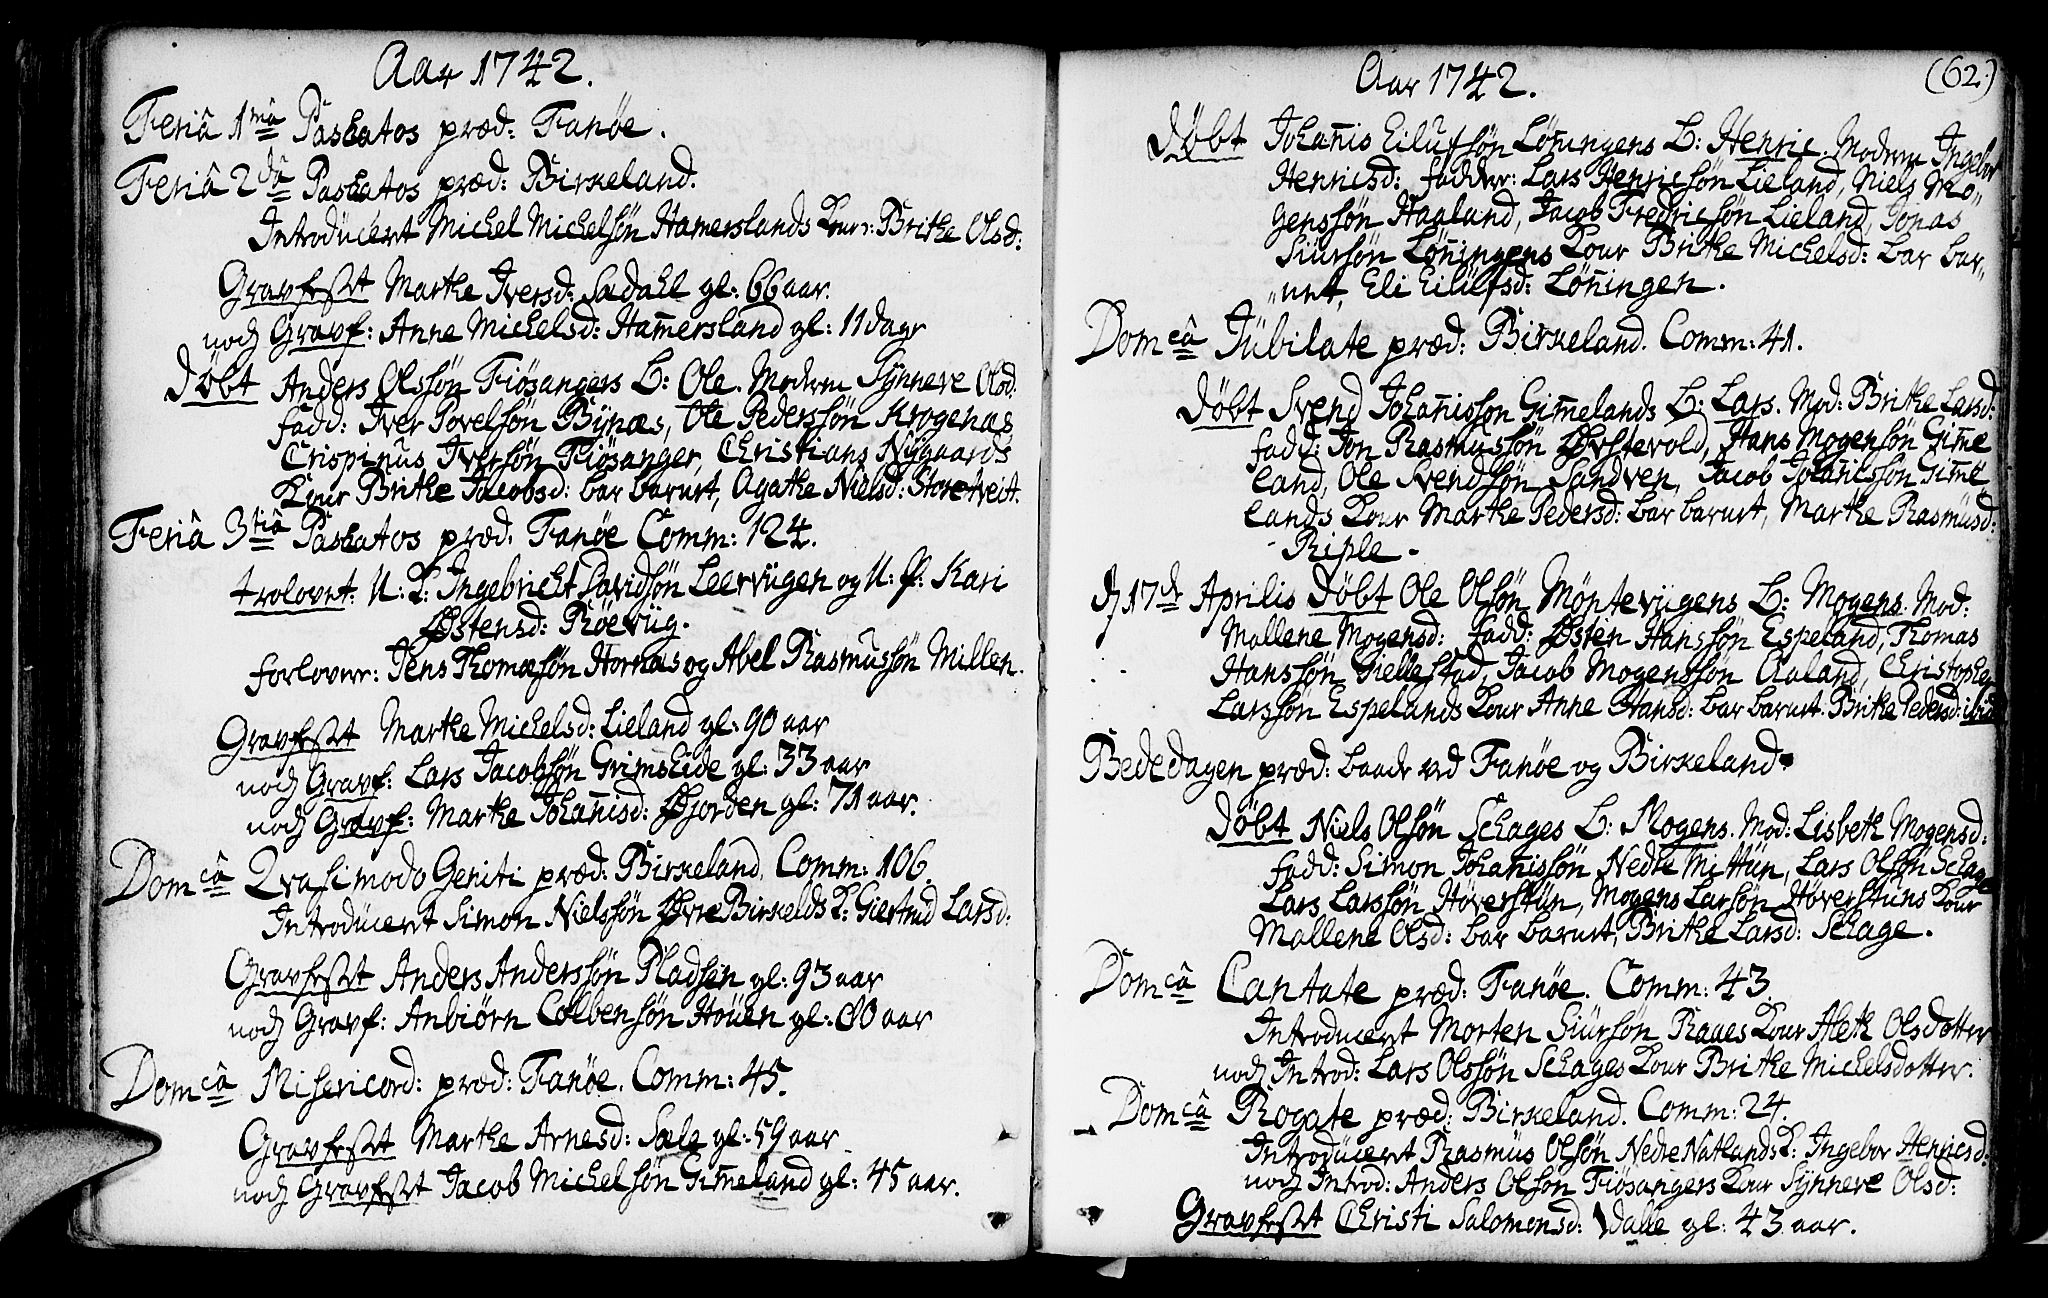 Aar 1742.
Feriâ 1mâ Paschatos præd: Fanøe.
Feriâ 2dâ Paschatos præd: Birkeland.
Introducert Michel Michelsøn Hamerslands Kone: Brithe Olsd:
Gravfæst Marthe Iversd: Sædahl gl: 66 aar.
noch Gravf: Anne Michelsd: Ham̄ersland gl: 11 dage
Døbt Anders Olssøn Fiøsangers B: Ole. Modren Synneve Olsd:
fadd: Iver Povelsøn Bynæs, Ole Pederssøn Krogenæs
Crispinus Iversøn Fiøsanger, Christians Nygaards
Kone Brithe Jacobsd: bar barnet, Agathe Nielsd: Storetveit.
Feriâ 3tiâ Paschatos præd: Fanøe Comm: 124.
trolovet: U: K: Ingebricht Davidsøn Leervügen og U: P: Kari
Østensd: Røevüg.
forlover: Jens Thomæsøn Hornæs og Abel Rasmussøn Millen.
Gravfæst Marthe Michelsd: Lieland gl: 90 aar
noch Gravf: Lars Jacobsøn Grimseide gl: 33 aar
noch Gravf: Marthe Johan̄isd: Øjorden gl: 71 aar.
Domcâ Qvasimodo Geniti præd: Birkeland. Comm: 106.
Introducert Simon Nielssøn Øvre Birkelds K: Giertrud Larsd:
Gravfæst Anders Anderssøn Pladsen gl: 93 aar
noch Gravf: Anbiørn Colbensøn Houen gl: 80 aar
Domcâ Misericord: præd: Fanøe. Comm: 45.
Gravfæst Marthe Arnesd: Sæle gl: 59 aar
noch Gravfæst Jacob Michelsøn Gim̄eland gl: 45 aar.
Aar 1742.
(62.)
Døbt Johan̄is Eilufsøn Løn̄ingens B: Henric. Modren Ingebor
Henricsd: fadder: Lars Henricsøn Lieland, Niels Mo-
genssøn Hagland, Jacob Fredricsøn Lieland, Jonas
Siursøn Løn̄ingens Kone Brithe Michelsd: bar bar-
net, Eli Eilufsd: Løn̄ingen.
Domcâ Jübilate præd: Birkeland. Comm: 41.
Døbt Svend Johan̄issøn Gim̄elands B: Lars. Mod: Brithe Larsd:
fadd: Jon Rasmussøn Øvstevold, Hans Mogensøn Gim̄e
land, Ole Svendsøn Sandven, Jacob Johan̄issøn Gim̄e
lands Kone Marthe Pedersd: bar barnet, Marthe Rasmusd:
Riple.
d 17de Aprilis Døbt Ole Olsøn Møntevügens B: Mogens. Mod:
Mallene Mogensd: fadd: Østen Hanssøn Espeland, Thomas
Hanssøn Giellestad, Jacob Mogenssøn Aaland, Christopher
Larssøn Espelands Kone Anne Hansd: bar barnet. Brithe Pedersd: ibid
Bededagen præd: baade ved Fanøe og Birkeland.
Døbt Niels Olsøn Schages B: Mogens. Mod: Lisbeth Mogensd:
fadd: Simon Johan̄issøn Nedre Mittün, Lars Olsøn Schage
Lars Larssøn Høverstün, Mogens Larsøn Høverstüns Kone
Mallene Olsd: bar barnet, Brithe Larsd: Schage.
Domcâ Cantate præd: Fanøe. Comm: 43.
Introducert Morten Siursøn Raaes Kone Aleth Olsdotter
noch Introd: Lars Olssøn Schages Kone Brithe Michelsdotter.
Domcâ Rogate præd: Birkeland. Comm: 24.
Introdücert Rasmus Olsøn Nedre Natlands K: Ingebor Henricsd:
noch Introd: Anders Olsøn Fiøsangers Kone Synneve Olsd:
Gravfæst Christi Salomonsd: Dalle gl: 43 aar.